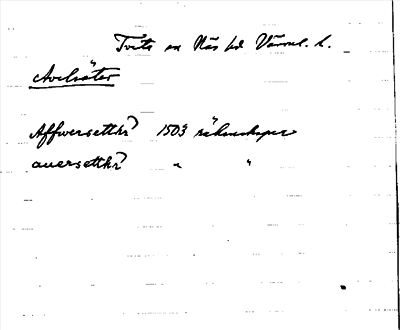 Tveta sn Näs hd Värml. l.
Avelsäter
Affwersetthr? 1503 räkenskaper
auersetthr? " "